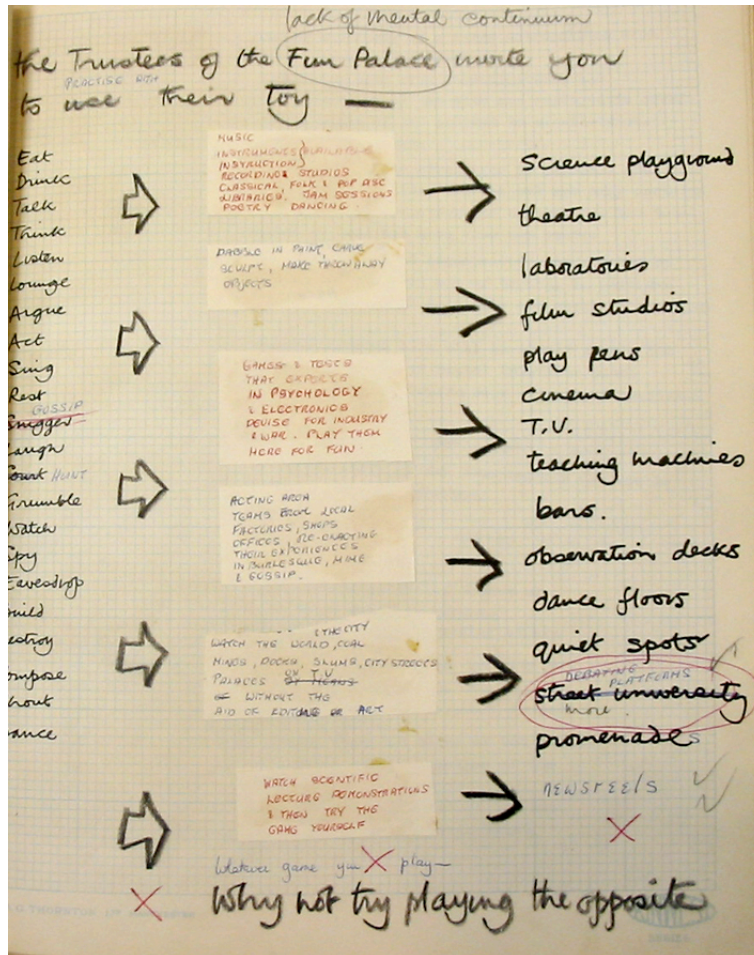 lack of mental continuum
the Trustees of the Fun Palace invite you
PRACTISE WITH
to use their Toy —
Eat
Drink
Talk
Think
Listen
Lounge
Argue
Act
Sing
Rest
GOSSIP
Snigger
Laugh
Court HUNT
Grumble
Watch
Spy
Eavesdrop
uild
estroy
ompose
hout
ance
MUSIC
INSTRUMENTS AVAILABLE
INSTRUCTION
RECORDING STUDIOS
CLASSICAL, FOLK & POP DISC
LIBRARIES, JAM SESSIONS
POETRY DANCING.
DABBLE IN PAINT, CARVE
SCULPT, MAKE THROW AWAY
OBJECTS
GAMES & TESTS
THAT EXPERTS
IN PSYCHOLOGY
& ELECTRONICS
DEVISE FOR INDUSTRY
& WAR. PLAY THEM
HERE FOR FUN.
ACTING AREA
TEAMS FROM LOCAL
FACTORIES, SHOPS
OFFICES, RE-ENACTING
THEIR EXPERIENCES
IN BURLESQUE, MIME
& GOSSIP.
THE CITY
WATCH THE WORLD, COAL
MINES, DOCKS, SLUMS, CITY STREETS
ON T.V.
PALACES BY MEANS
OF WITHOUT THE
AID OF EDITING OR ART
WATCH SCENTIFIC
LECTURE DEMONSTRATIONS
& THEN TRY THE
GAME YOURSELF
Science playground
theatre
laboratories
film studios
play pens
cinema
T.V.
teaching machines
bars.
observation decks
dance floors
quiet spots
DEBATING
PLATFORMS
street university
more.
promenades
NEWSREELS
Whatever game you play —
Why not try playing the opposite